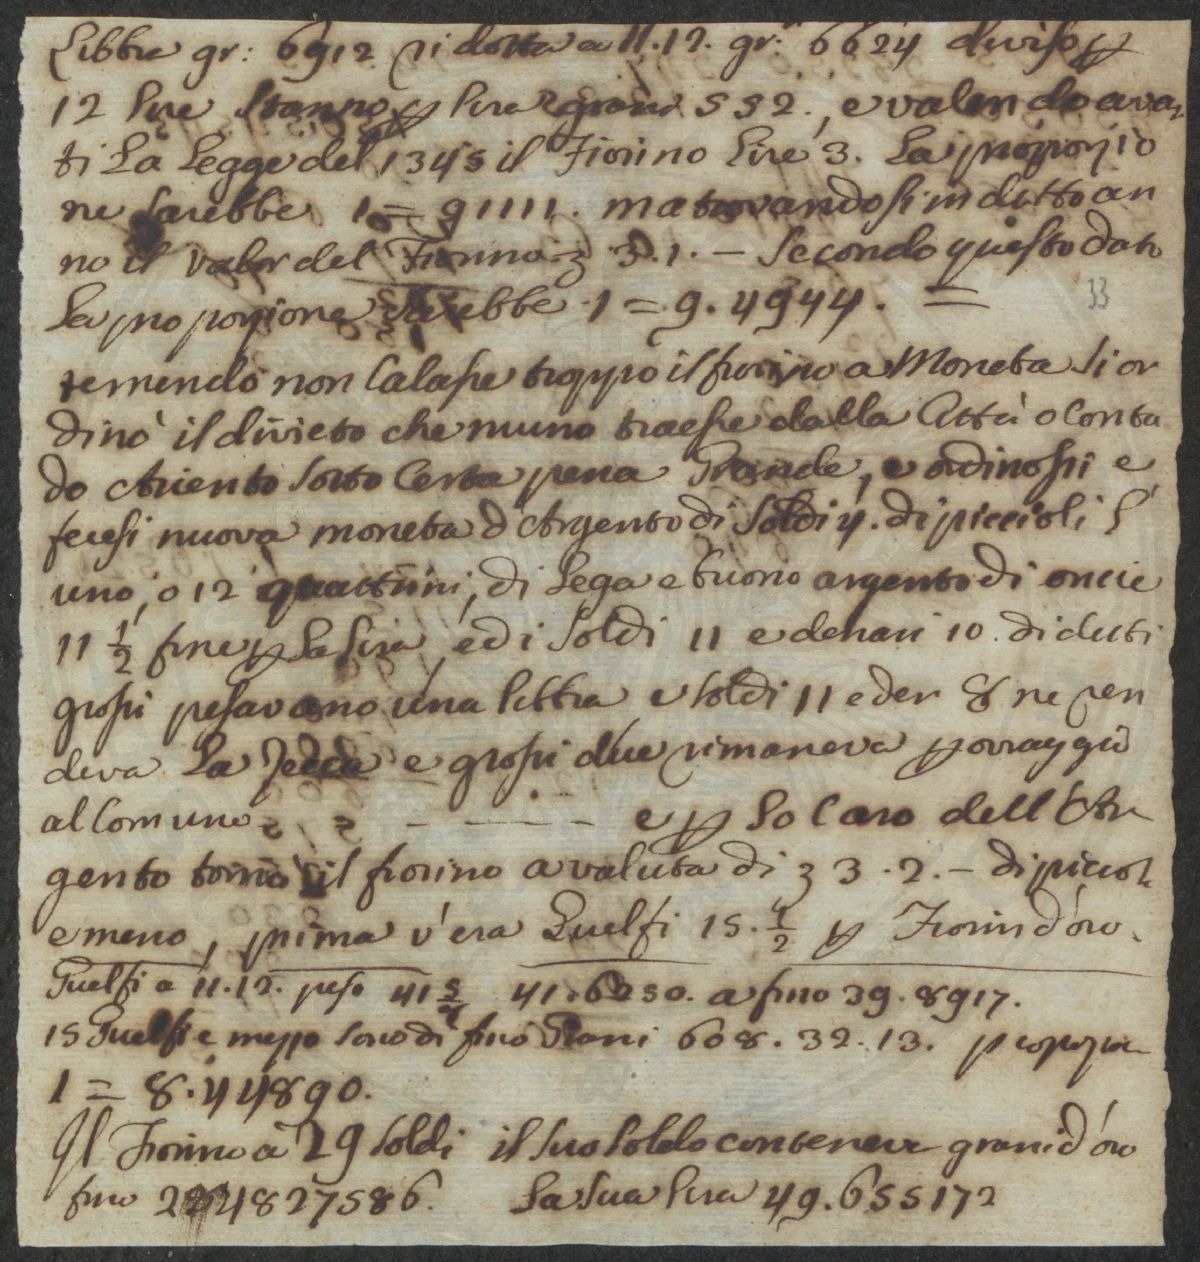 Libbra gr: 6912 ridotta a 11.12. gr: 6624 diviso p
12 lire stanno p lira grani 552., e valendo avan
ti La Legge del 1345 il Fiorino Lire 3. La proporzio
ne sarebbe 1 = 91111. ma trovandosi in detto an
no il valor del Fiorino 3.1. — Secondo questo dato
La proporzione sarebbe 1 = 9.4944. = 33
temendo non Calasse troppo il fiorino a Moneta si or
dinò il divieto che niuno traesse dalla Città o Conta
do Ariento sotto Certa pena Grande, e ordinossi e
fecesi nuova moneta d'Argento di Soldi 4. di piccioli l'
uno, o 12 quattrini, di Lega e buono argento di oncie
11 1/2 fine p La Lira, ed i Soldi 11 e denari 10. di detti
grossi pesavano una libbra e soldi 11 e den 8 ne ren
deva La Zecca e grossi due rimaneva p ovraggio
al Comune — — — e p Lo Caro dell'Ar
gento tornò il fiorino a valuta di 3.2. — di piccioli
e meno, prima v'era Guelfi 15. 1/2 p Fiorin d'oro.
Guelfi a 11.12. peso 41 5/8 41.6250. a fino 39.8917.
15 Guelfi e mezzo sono di fino Grani 608.32.13. proporzion
1 = 8.44890.
Il Fiorino a 29 soldi il suo soldo conteneva grani d'oro
fino 2 4827586. La sua lira 49.655172